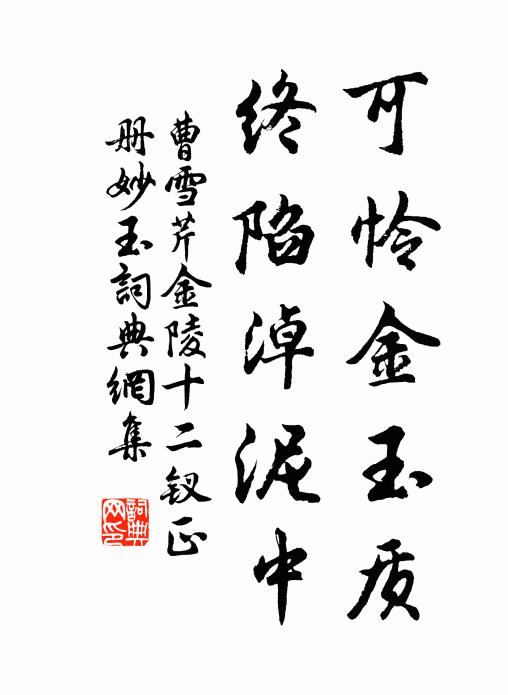 可怜金玉质
终陷淖泥中
曹雪芹金陵十二钗正
册妙玉詞典網集
詞典网印